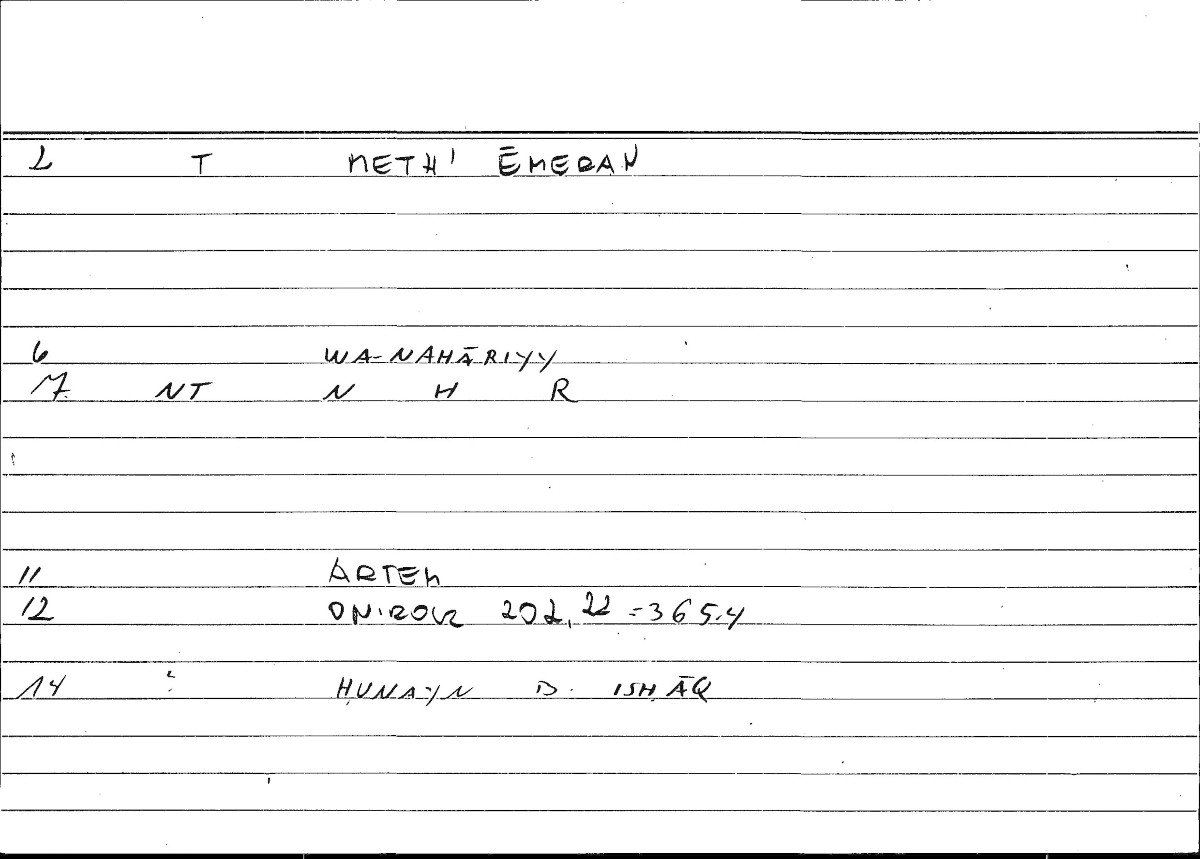 2 T METH' ĒMERAN
6 WA-NAHĀRIYY
7 NT N H R
11 ARTEM
12 ONIROK 202, 22 = 365.4
14 ḤUNAYN B. ISḤĀQ